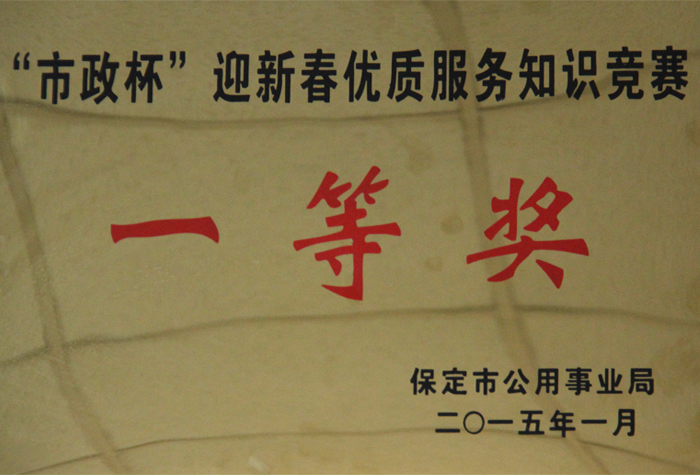 “市政杯”迎新春优质服务知识竞赛
一等奖
保定市公用事业局
二〇一五年一月